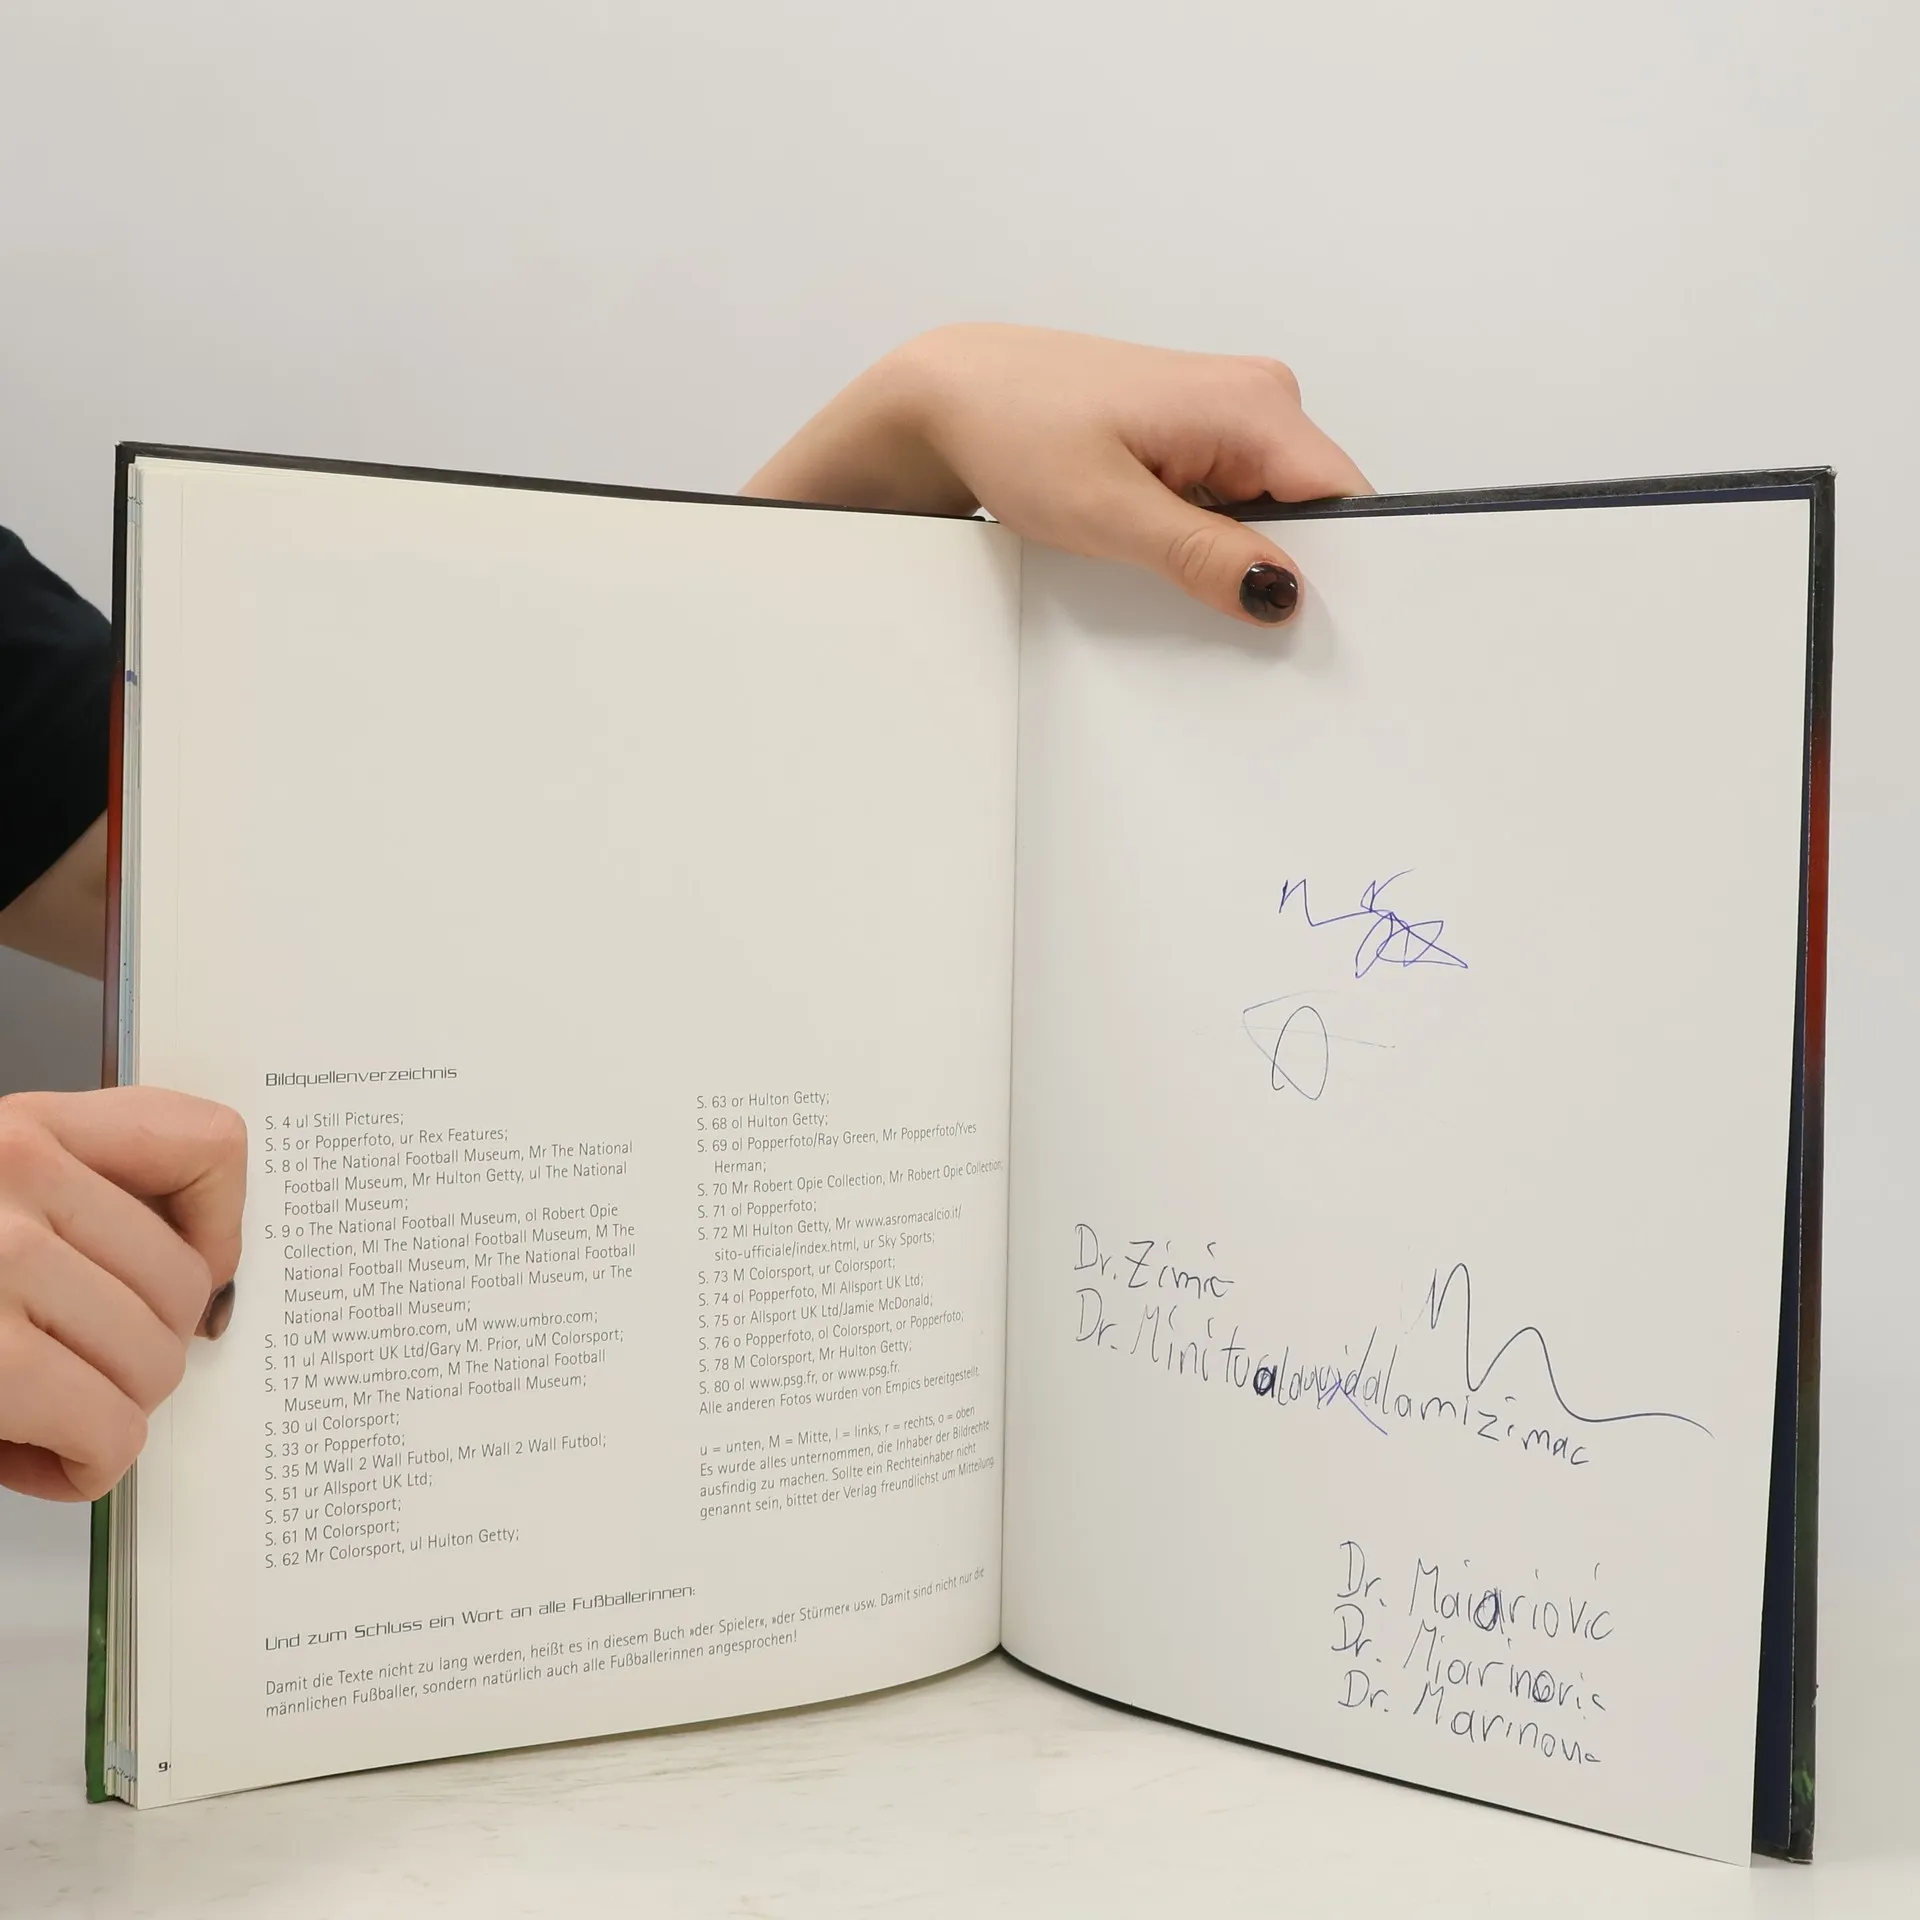 Bildquellenverzeichnis
S. 4 ul Still Pictures;
S. 5 or Popperfoto, ur Rex Features;
S. 8 ol The National Football Museum, Mr The National
Football Museum, Mr Hulton Getty, ul The National
Football Museum;
S. 9 o The National Football Museum, ol Robert Opie
Collection, Ml The National Football Museum, M The
National Football Museum, Mr The National Football
Museum, uM The National Football Museum, ur The
National Football Museum;
S. 10 uM www.umbro.com, uM www.umbro.com;
S. 11 ul Allsport UK Ltd/Gary M. Prior, uM Colorsport;
S. 17 M www.umbro.com, M The National Football
Museum, Mr The National Football Museum;
S. 30 ul Colorsport;
S. 33 or Popperfoto;
S. 35 M Wall 2 Wall Futbol, Mr Wall 2 Wall Futbol;
S. 51 ur Allsport UK Ltd;
S. 57 ur Colorsport;
S. 61 M Colorsport;
S. 62 Mr Colorsport, ul Hulton Getty;
S. 63 or Hulton Getty;
S. 68 ol Hulton Getty;
S. 69 ol Popperfoto/Ray Green, Mr Popperfoto/Yves
Herman;
S. 70 Mr Robert Opie Collection, Mr Robert Opie Collection;
S. 71 ol Popperfoto;
S. 72 Ml Hulton Getty, Mr www.asromacalcio.it/
sito-ufficiale/index.html, ur Sky Sports;
S. 73 M Colorsport, ur Colorsport;
S. 74 ol Popperfoto, Ml Allsport UK Ltd;
S. 75 or Allsport UK Ltd/Jamie McDonald;
S. 76 o Popperfoto, ol Colorsport, or Popperfoto;
S. 78 M Colorsport, Mr Hulton Getty;
S. 80 ol www.psg.fr, or www.psg.fr.
Alle anderen Fotos wurden von Empics bereitgestellt.
u = unten, M = Mitte, l = links, r = rechts, o = oben
Es wurde alles unternommen, die Inhaber der Bildrechte
ausfindig zu machen. Sollte ein Rechteinhaber nicht
genannt sein, bittet der Verlag freundlichst um Mitteilung.
Und zum Schluss ein Wort an alle Fußballerinnen:
Damit die Texte nicht zu lang werden, heißt es in diesem Buch »der Spieler«, »der Stürmer« usw. Damit sind nicht nur die
männlichen Fußballer, sondern natürlich auch alle Fußballerinnen angesprochen!
Dr. Zimić
Dr.
Dr.
Dr.
Dr. Marinovic